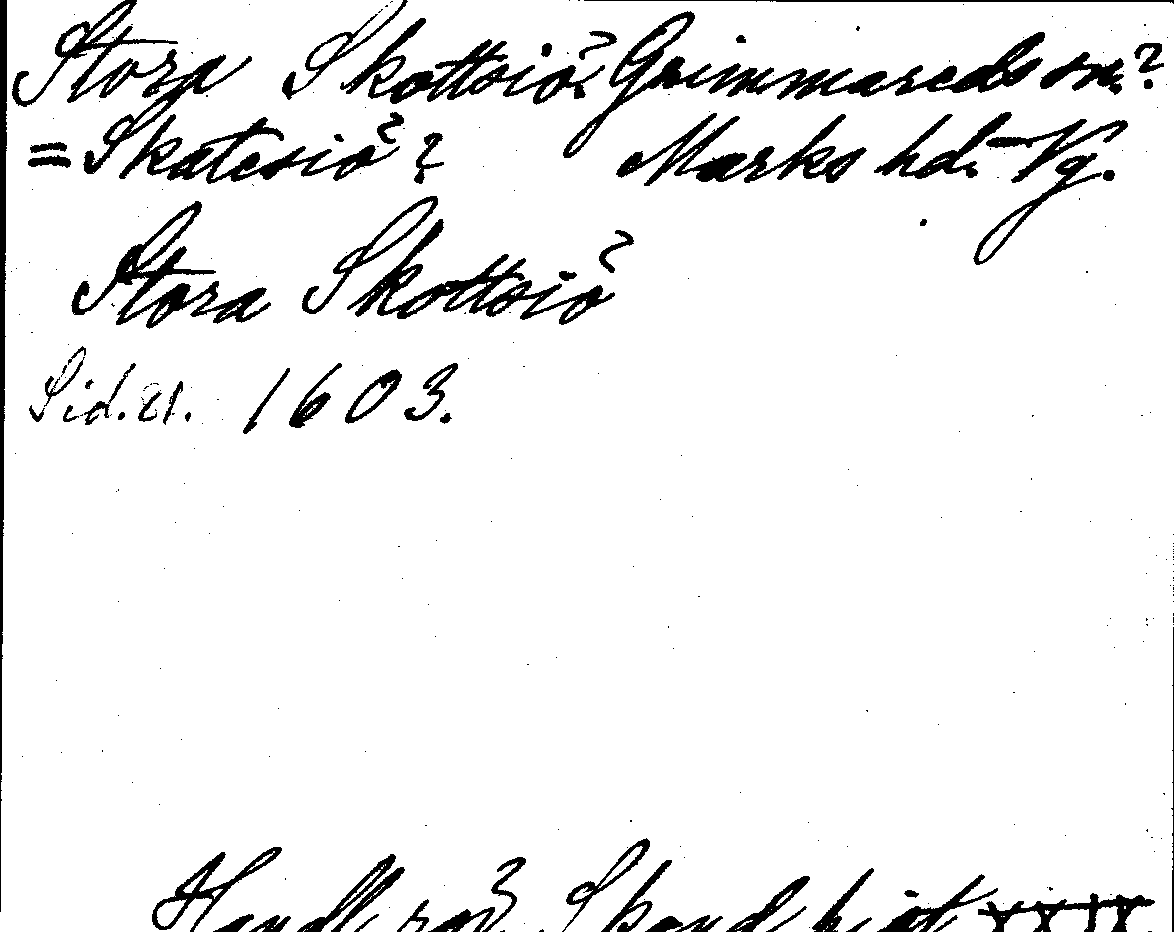 Stora Skottsiö? Grimmareds sn?
= Skatesiö? Marks hd. Vg.
Stora Skottsiö
Sid. 21. 1603.
Handl. rör. Skand. hist XXIX